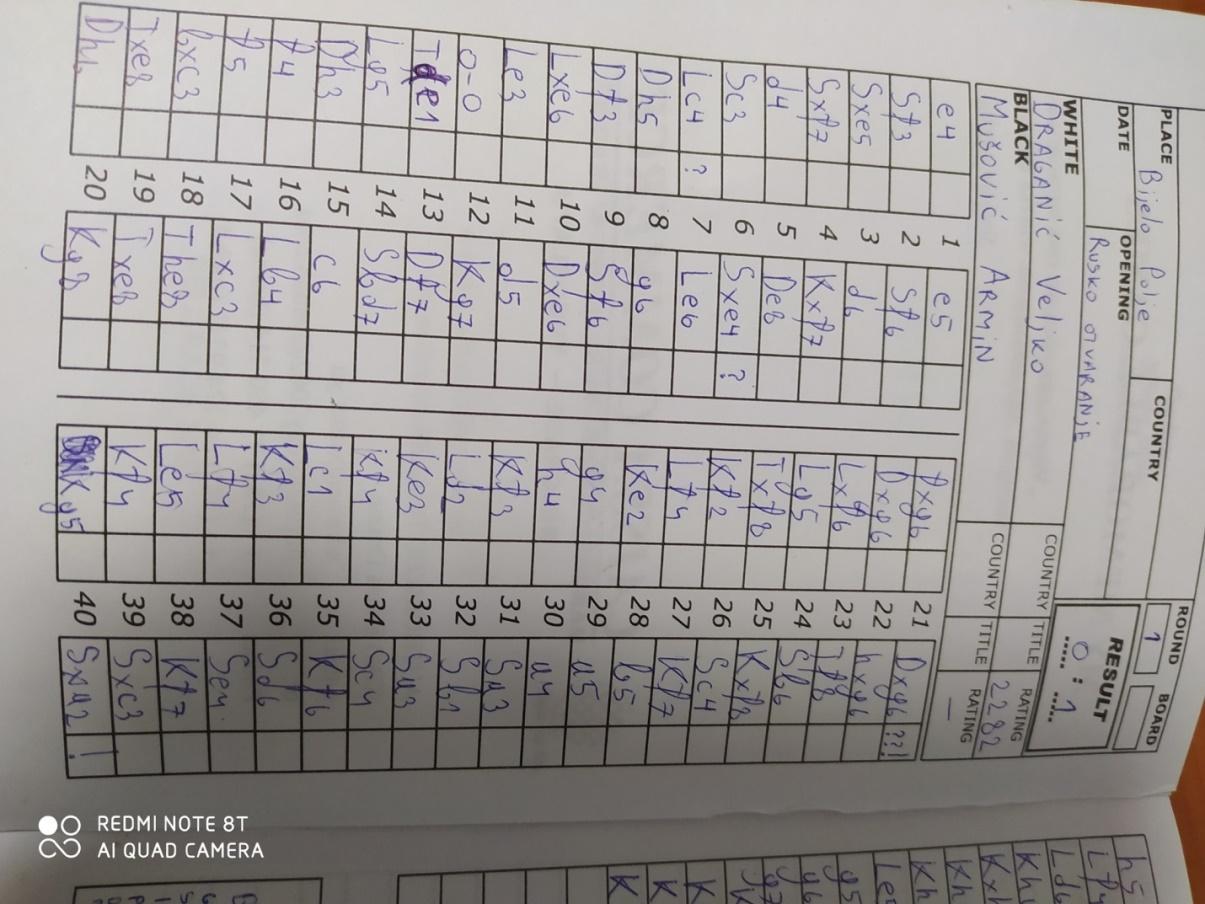 PLACE Bijelo Polje COUNTRY ROUND 1 BOARD
DATE OPENING Rusko otvaranje RESULT 0 : 1
WHITE DRAGANIĆ Veljko COUNTRY TITLE RATING 2282
BLACK Mušović ARMIN COUNTRY TITLE RATING —
e4 1 e5
Sf3 2 Sf6
Sxe5 3 d6
Sxf7 4 Kxf7
d4 5 De8
Sc3 6 Sxe4 ?
Lc4 ? 7 Le6
Dh5 8 g6
Df3 9 Sf6
Lxe6 10 Dxe6
Le3 11 d5
0-0 12 Kg7
Tfe1 13 Df7
Lg5 14 Sbd7
Dh3 15 c6
f4 16 Lb4
f5 17 Lxc3
bxc3 18 The8
Txe8 19 Txe8
Dh4 20 Kg8
fxg6 21 Dxg6 ??!
Dxg6 22 hxg6
Lxf6 23 Tf8
Lg5 24 Sb6
Txf8 25 Kxf8
Kf2 26 Sc4
Lf4 27 Kf7
Ke2 28 b5
g4 29 a5
h4 30 a4
Kf3 31 Sa3
Ld2 32 Sb1
Ke3 33 Sa3
Kf4 34 Sc4
Lc1 35 Kf6
Kf3 36 Sd6
Lf4 37 Se4
Le5 38 Kf7
Kf4 39 Sxc3
Kg5 40 Sxa2 !
h5
Lf4
Ld6
g5
g6
g7
K
K
K
REDMI NOTE 8T
AI QUAD CAMERA